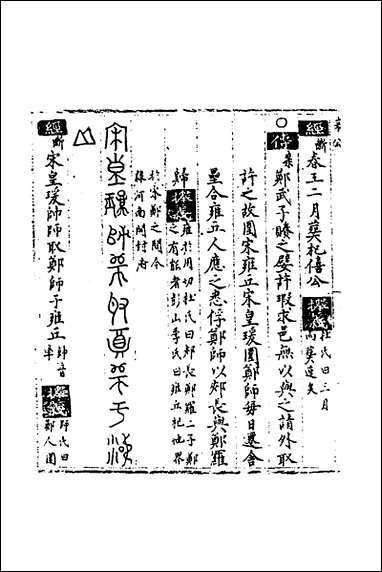 哀公
經 斷 春王二月葬杞僖公
杜氏曰三月
而葬速矣
○ 傳 鄭武子賸之嬖許瑕求邑無以與之請外取
許之故圍宋雍丘宋皇瑗圍鄭師每日遷舍
壘合雍丘人應之悉俘鄭師以郟長與鄭羅
歸
雍於用切杜氏曰郟長鄭羅二子鄭
之有能者彭山季氏曰雍丘杞世界
於宋鄭之間今
隸河南開封府
宋皇瑗帥師取鄭師于雍
丘
經 斷 宋皇瑗帥師取鄭師于雍丘
帥音
率
師氏曰
鄭人圍